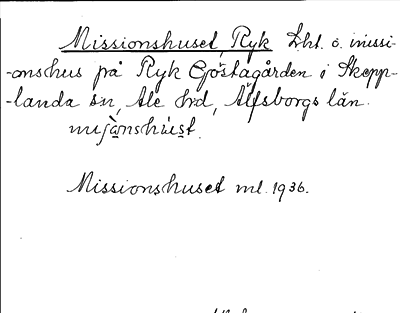 Missionshuset, Ryk Lht. o. missi-
-onshus på Ryk Göstagården i Skepp-
-landa sn, Ale hrd, Älfsborgs län.
misjònshúset.
Missionshuset ml. 1936.